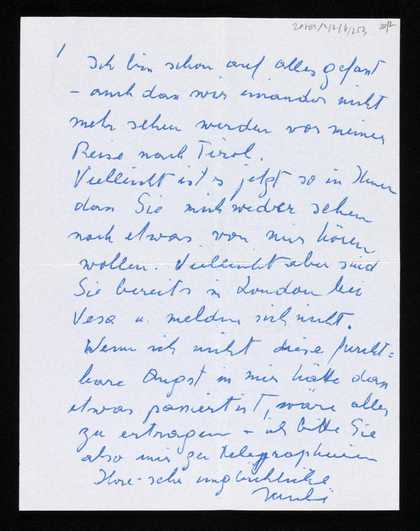 1
Ich bin schon auf alles gefasst
– auch dass wir einander nicht
mehr sehen werden vor meiner
Reise nach Tirol.
Vielleicht ist es jetzt so in Ihnen
dass Sie mich weder sehen
noch etwas von mir hören
wollen. Vielleicht aber sind
Sie bereits in London bei
Vesa u. melden sich nicht.
Wenn ich nicht diese furcht=
bare Angst in mir hätte dass
etwas passiert ist, wäre alles
zu ertragen – ich bitte Sie
also mir zu telegraphieren
Ihre sehr unglückliche